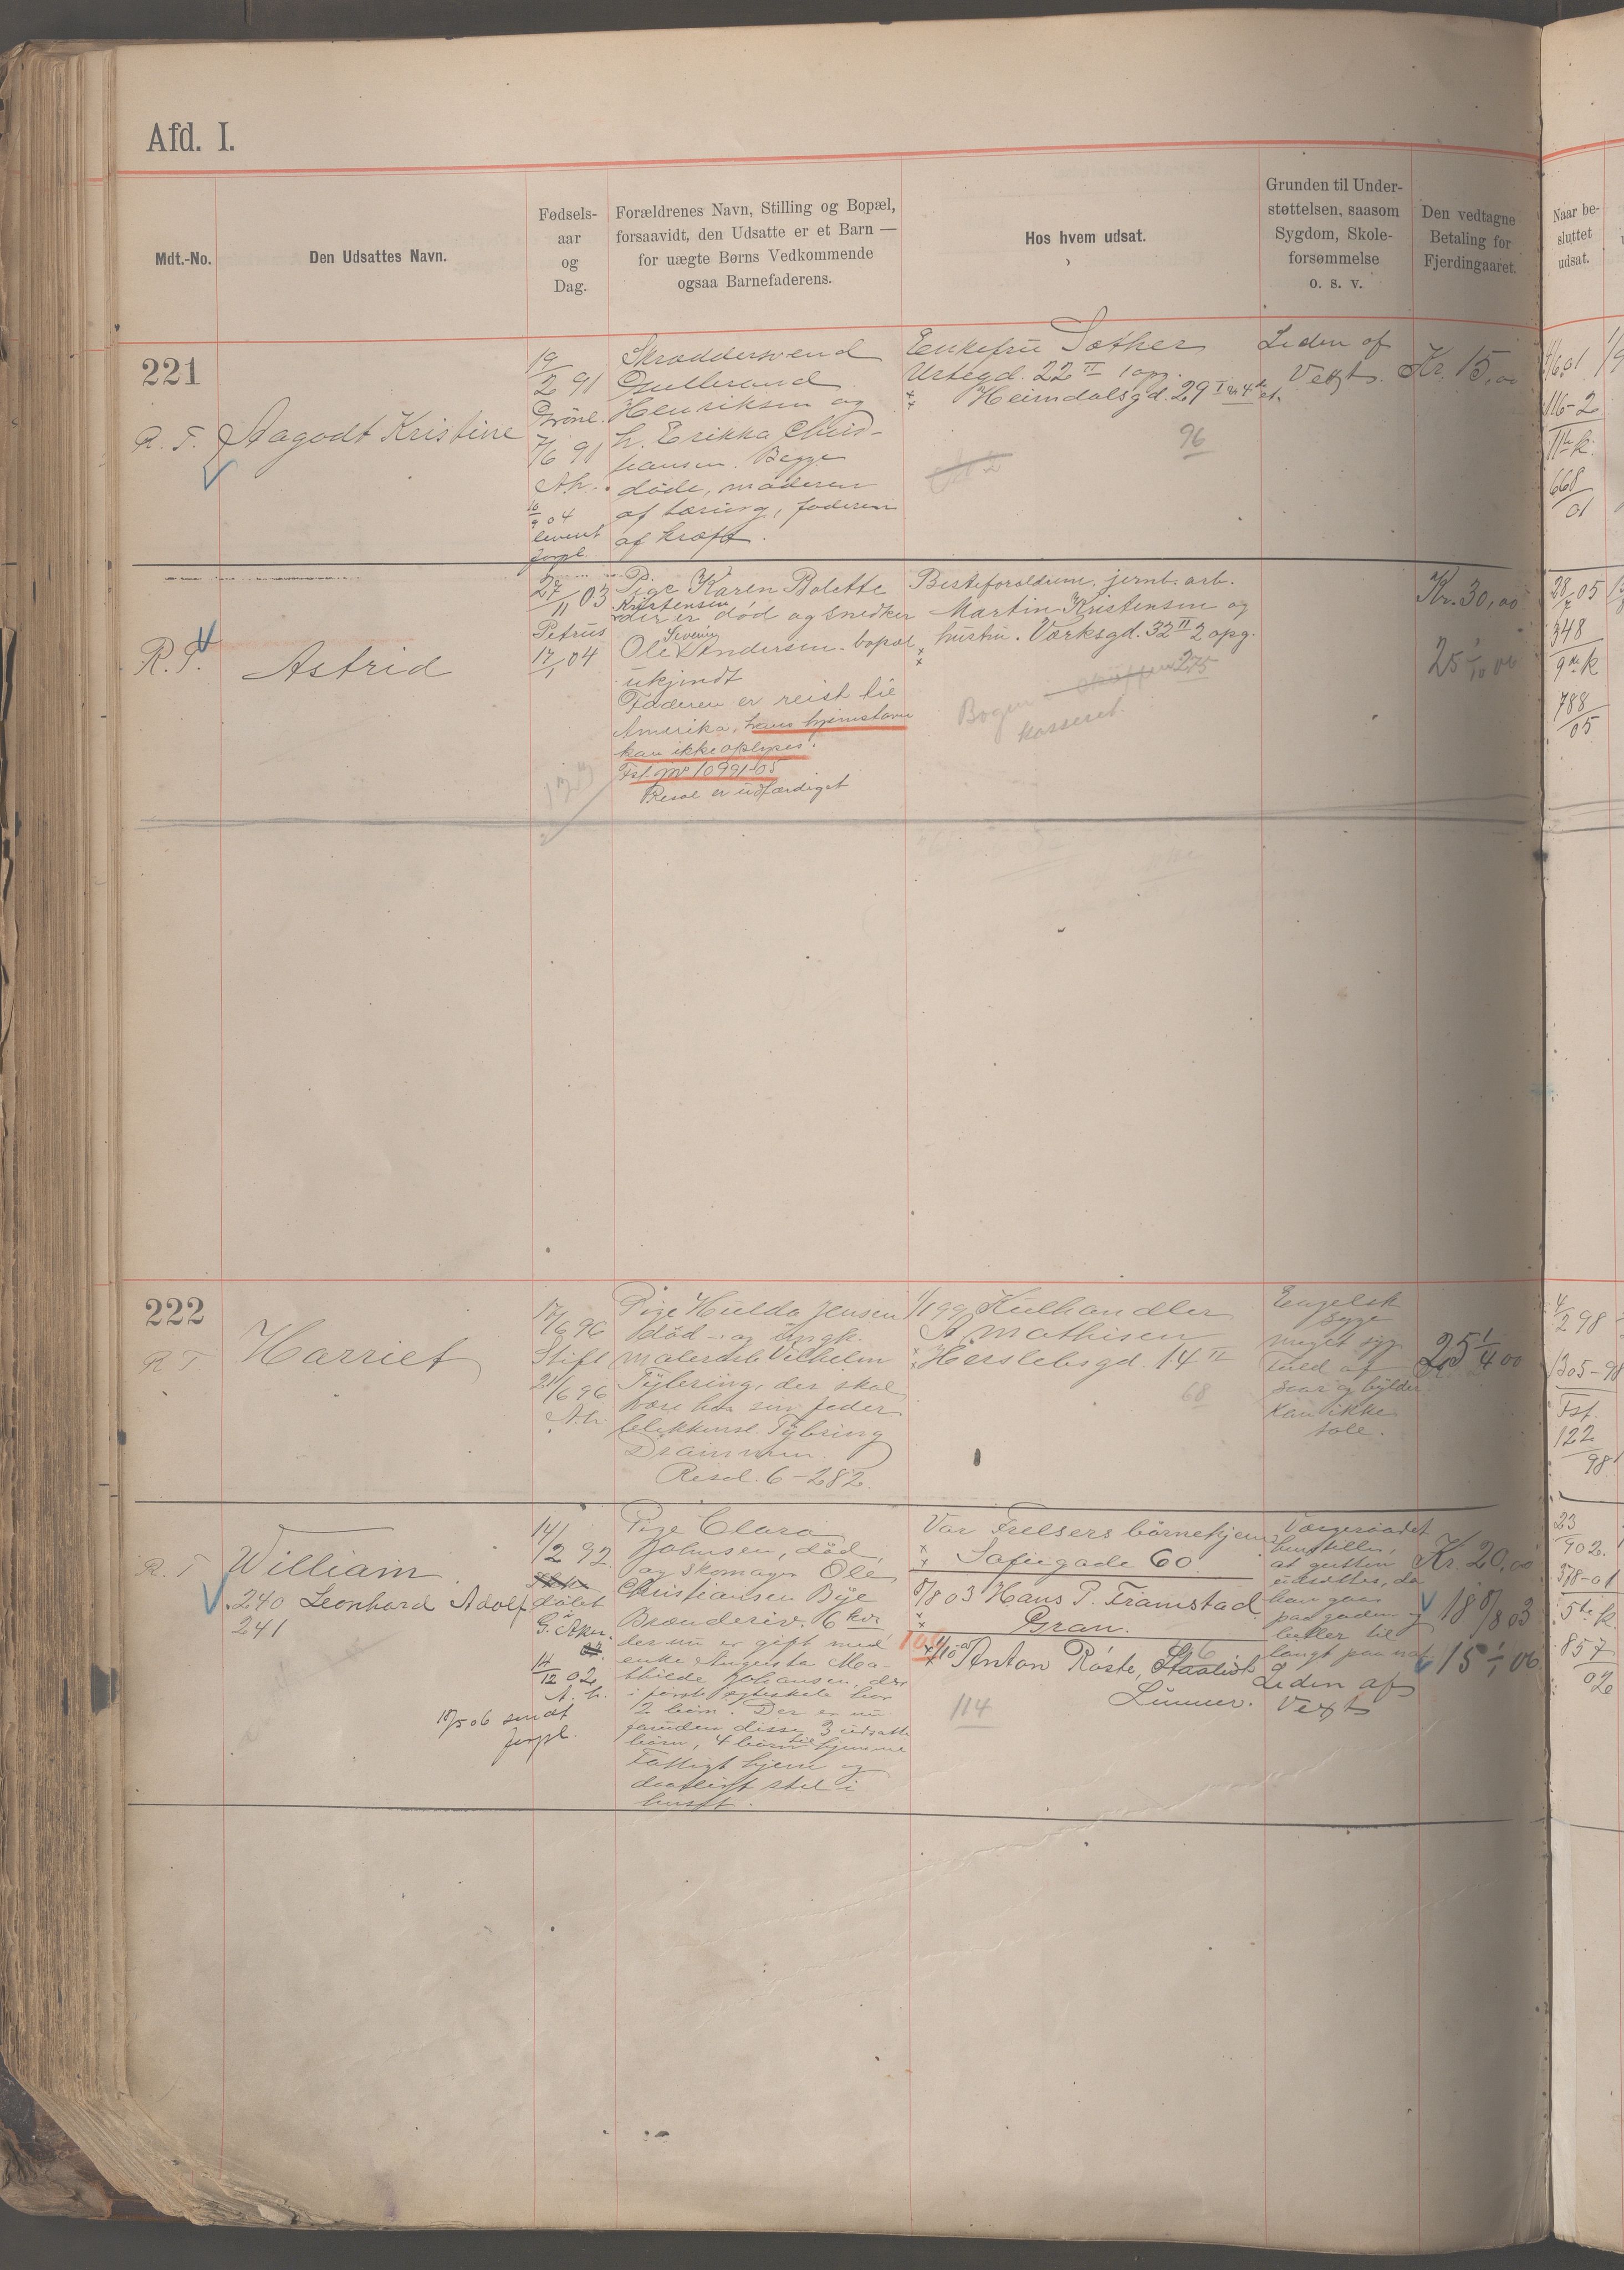 Afd. I.
Mdt.-No.
Den Udsattes Navn.
Fødsels-
aar
og
Dag.
Forældrenes Navn, Stilling og Bopæl,
forsaavidt, den Udsatte er et Barn —
for uægte Børns Vedkommende
ogsaa Barnefaderens.
Hos hvem udsat.
Grunden til Under-
støttelsen, saasom
Sygdom, Skole-
forsømmelse
o. s. v.
Den vedtagne
Betaling for
Fjerdingaaret.
Naar be-
sluttet
udsat.
221
R. T. Aagodt Kristine
19/2 91
Grönl.
7/6 91
A.h.
16/9 04
leveret
forpl.
Skræddersvend
Gulbrand
Henriksen og
h. Erikka
hansen. Begge
døde, moderen
af tæring, faderen
af kræft.
Enkefru Sæther
Urtegd. 22 II 1 opg.
Heimdalsgd. 29
96
Liden af
Vext.
Kr. 15,00
116-2
11te k.
668/01
R. T. Astrid
27/11 03
Petrus
17/1 04
Pige Karen Bolette
Kristensen
der er død og Snedker
Severin
Ole Andersen. bopæl
ukjendt
Faderen er reist til
Amerika, hans hjemstavn
kan ikke oplyses.
Fst. No 10991-05
Resol er udfærdiget
Besteforældrene, jernb. arb.
Martin Kristensen og
hustru. Værksgd. 32 II 2 opg.
275
Bogen
kasseret.
Kr. 30,00
25 1/10 06
28/7 05
348
9de k
788/05
222
R T Harriet
17/6 96
Stift
21/6 96
A.h.
Pige Hulda Jensen
død - og
malerdl. Vilhelm
Tybring, der skal
være hos sin fader
blikkensl. Tybring
Drammen.
Resol. 6-282.
1/1 99 Kulhandler
A. Mathisen
Herslebsgd. 14 II
68
Engelsk
syge
meget syg
Fuld af
saar og bylder
Kan ikke
tale.
25 1/4 00
4/2 98
1305-98
Fst.
122/98
R. T William
240 Leonhard Adolf
241
14/2 92
døbt
G. Aker.
14/12 02
A. h.
18/5 06 sendt
forpl.
Pige Clara
Johnsen, død,
og skomager Ole
Christiansen Bye
Brænderiv. 6
der nu er gift med
enke Augusta Ma-
thilde Johansen, der
i første egteskab har
2 børn. Der er nu
foruden disse 3 udsatte
børn, 4 børn til hjemme
Fattigt hjem og
daarligt stel i
huset.
Vor Frelsers börnehjem
Sofiegade 60
8/8 03 Hans P. Framstad
Gran.
1/10 Anton Røste,
Lunner.
114
Værgeraadet
henstiller,
at gutten
udsættes, da
han gaar
paa gaden og
langt paa nat
Liden af
Vext
Kr. 20,00
18 8/8 03
15 1/1 06
23/9 02.
378-01
5te k
857/02